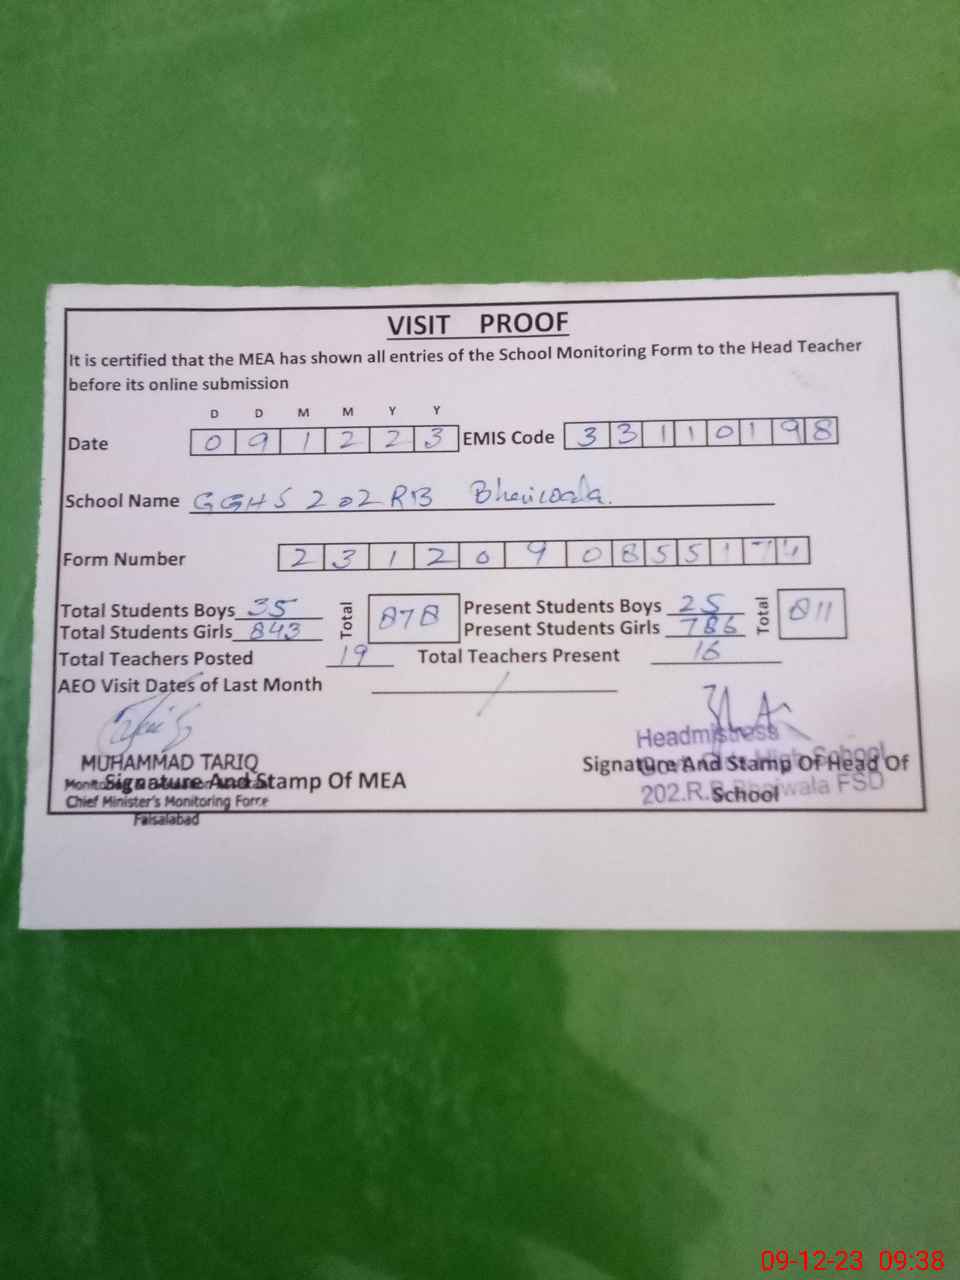 VISIT PROOF
It is certified that the MEA has shown all entries of the School Monitoring Form to the Head Teacher
before its online submission
D D M M Y Y
Date 0 9 1 2 2 3 EMIS Code 3 3 1 1 0 1 9 8
School Name GGHS 202 RB Bhaiwala.
Form Number 2 3 1 2 0 9 0 8 5 5 1 7 4
Total Students Boys 35 Total 878 Present Students Boys 25 Total 811
Total Students Girls 843 Present Students Girls 786
Total Teachers Posted 19 Total Teachers Present 16
AEO Visit Dates of Last Month /
Headmistress
MUHAMMAD TARIQ
High School
Signature And Stamp Of MEA Signature And Stamp Of Head Of
School
Chief Minister's Monitoring Force 202.R.B Bhaiwala FSD
Faisalabad
09-12-23 09:38